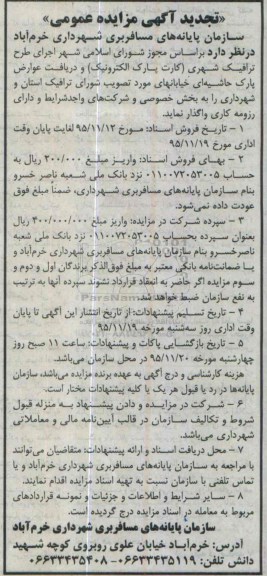 «تجدید آگهی مزایده عمومی»
سازمان پایانه‌های مسافربری شهرداری خرم‌آباد
درنظر دارد براساس مجوز شورای اسلامی شهر اجرای طرح
ترافیک شهری (کارت پارک الکترونیک) و دریافت عوارض
پارک حاشیه‌ای خیابانهای مورد تصویب شورای ترافیک استان و
شهرداری را به بخش خصوصی و شرکت‌های واجدشرایط و دارای
رزومه کاری واگذار نماید.
۱ – تاریخ فروش اسناد: مورخ ۹۵/۱۱/۱۲ لغایت پایان وقت
اداری مورخ ۹۵/۱۱/۱۹
۲ – بهای فروش اسناد: واریز مبلغ ۲۰۰/۰۰۰ ریال به
حساب ۰۱۱۰۰۷۲۰۵۳۰۰۵ نزد بانک ملی شعبه ناصر خسرو
بنام سازمان پایانه‌های مسافربری شهرداری، ضمناً مبلغ فوق
عودت داده نمی‌شود.
۳ – سپرده شرکت در مزایده: واریز مبلغ ۴۰۰/۰۰۰/۰۰۰ ریال
بعنوان سپرده بحساب ۰۱۱۰۰۷۲۰۵۳۰۰۵ نزد بانک ملی شعبه
ناصرخسرو بنام سازمان پایانه‌های مسافربری شهرداری خرم‌آباد و
یا ضمانت‌نامه بانکی معتبر به مبلغ فوق‌الذکر برندگان اول و دوم و
سوم مزایده اگر حاضر به انعقاد قرارداد نشوند سپرده آنها به ترتیب
به نفع سازمان ضبط خواهد شد.
۴ – تاریخ تسلیم پیشنهادات: از تاریخ انتشار این آگهی تا پایان
وقت اداری روز سه‌شنبه مورخه ۹۵/۱۱/۱۹
۵ – تاریخ بازگشایی پاکات و پیشنهادات: ساعت ۱۱ صبح روز
چهارشنبه مورخه ۹۵/۱۱/۲۰ در محل سازمان می‌باشد.
هزینه کارشناسی و درج آگهی به عهده برنده مزایده می‌باشد، سازمان
پایانه‌ها در رد یا قبول هر یک یا کلیه پیشنهادات مختار است.
۶ – شرکت در مزایده و دادن پیشنهاد به منزله قبول
شروط و تکالیف سازمان در قالب آیین‌نامه مالی و معاملاتی
شهرداری می‌باشد.
۷ – محل دریافت اسناد و ارائه پیشنهادات: متقاضیان می‌توانند
با مراجعه به سازمان پایانه‌های مسافربری شهرداری خرم‌آباد و یا
تماس تلفنی با سازمان نسبت به تهیه اسناد مزایده اقدام نمایند.
۸ – سایر شرایط و اطلاعات و جزئیات و نمونه قراردادهای
مربوط به معامله در اسناد مزایده درج گردیده است.
سازمان پایانه‌های مسافربری شهرداری خرم‌آباد
آدرس: خرم‌آباد خیابان علوی روبروی کوچه شهید
دانش تلفن: ۰۶۶۳۳۴۳۵۱۱۹ – ۰۶۶۳۳۴۳۵۴۰۸